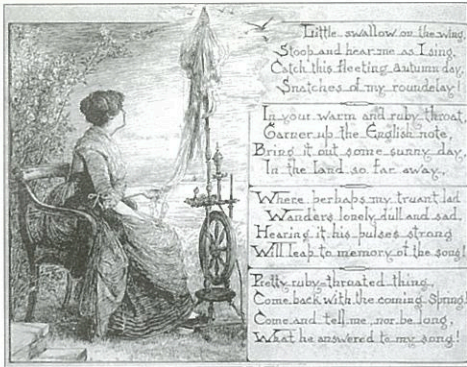 Little swallow on the wing,
Stoop and hear me as I sing,
Catch this fleeting autumn day,
Snatches of my roundelay!
In your warm and ruby throat,
Garner up the English note,
Bring it out some sunny day,
In the land so far away,
Where perhaps my truant lad
Wanders lonely, dull and sad,
Hearing it, his pulses strong
Will leap to memory of the song!
Pretty ruby-throated thing,
Come back with the coming Spring!
Come and tell me, nor be long,
What he answered to my song!